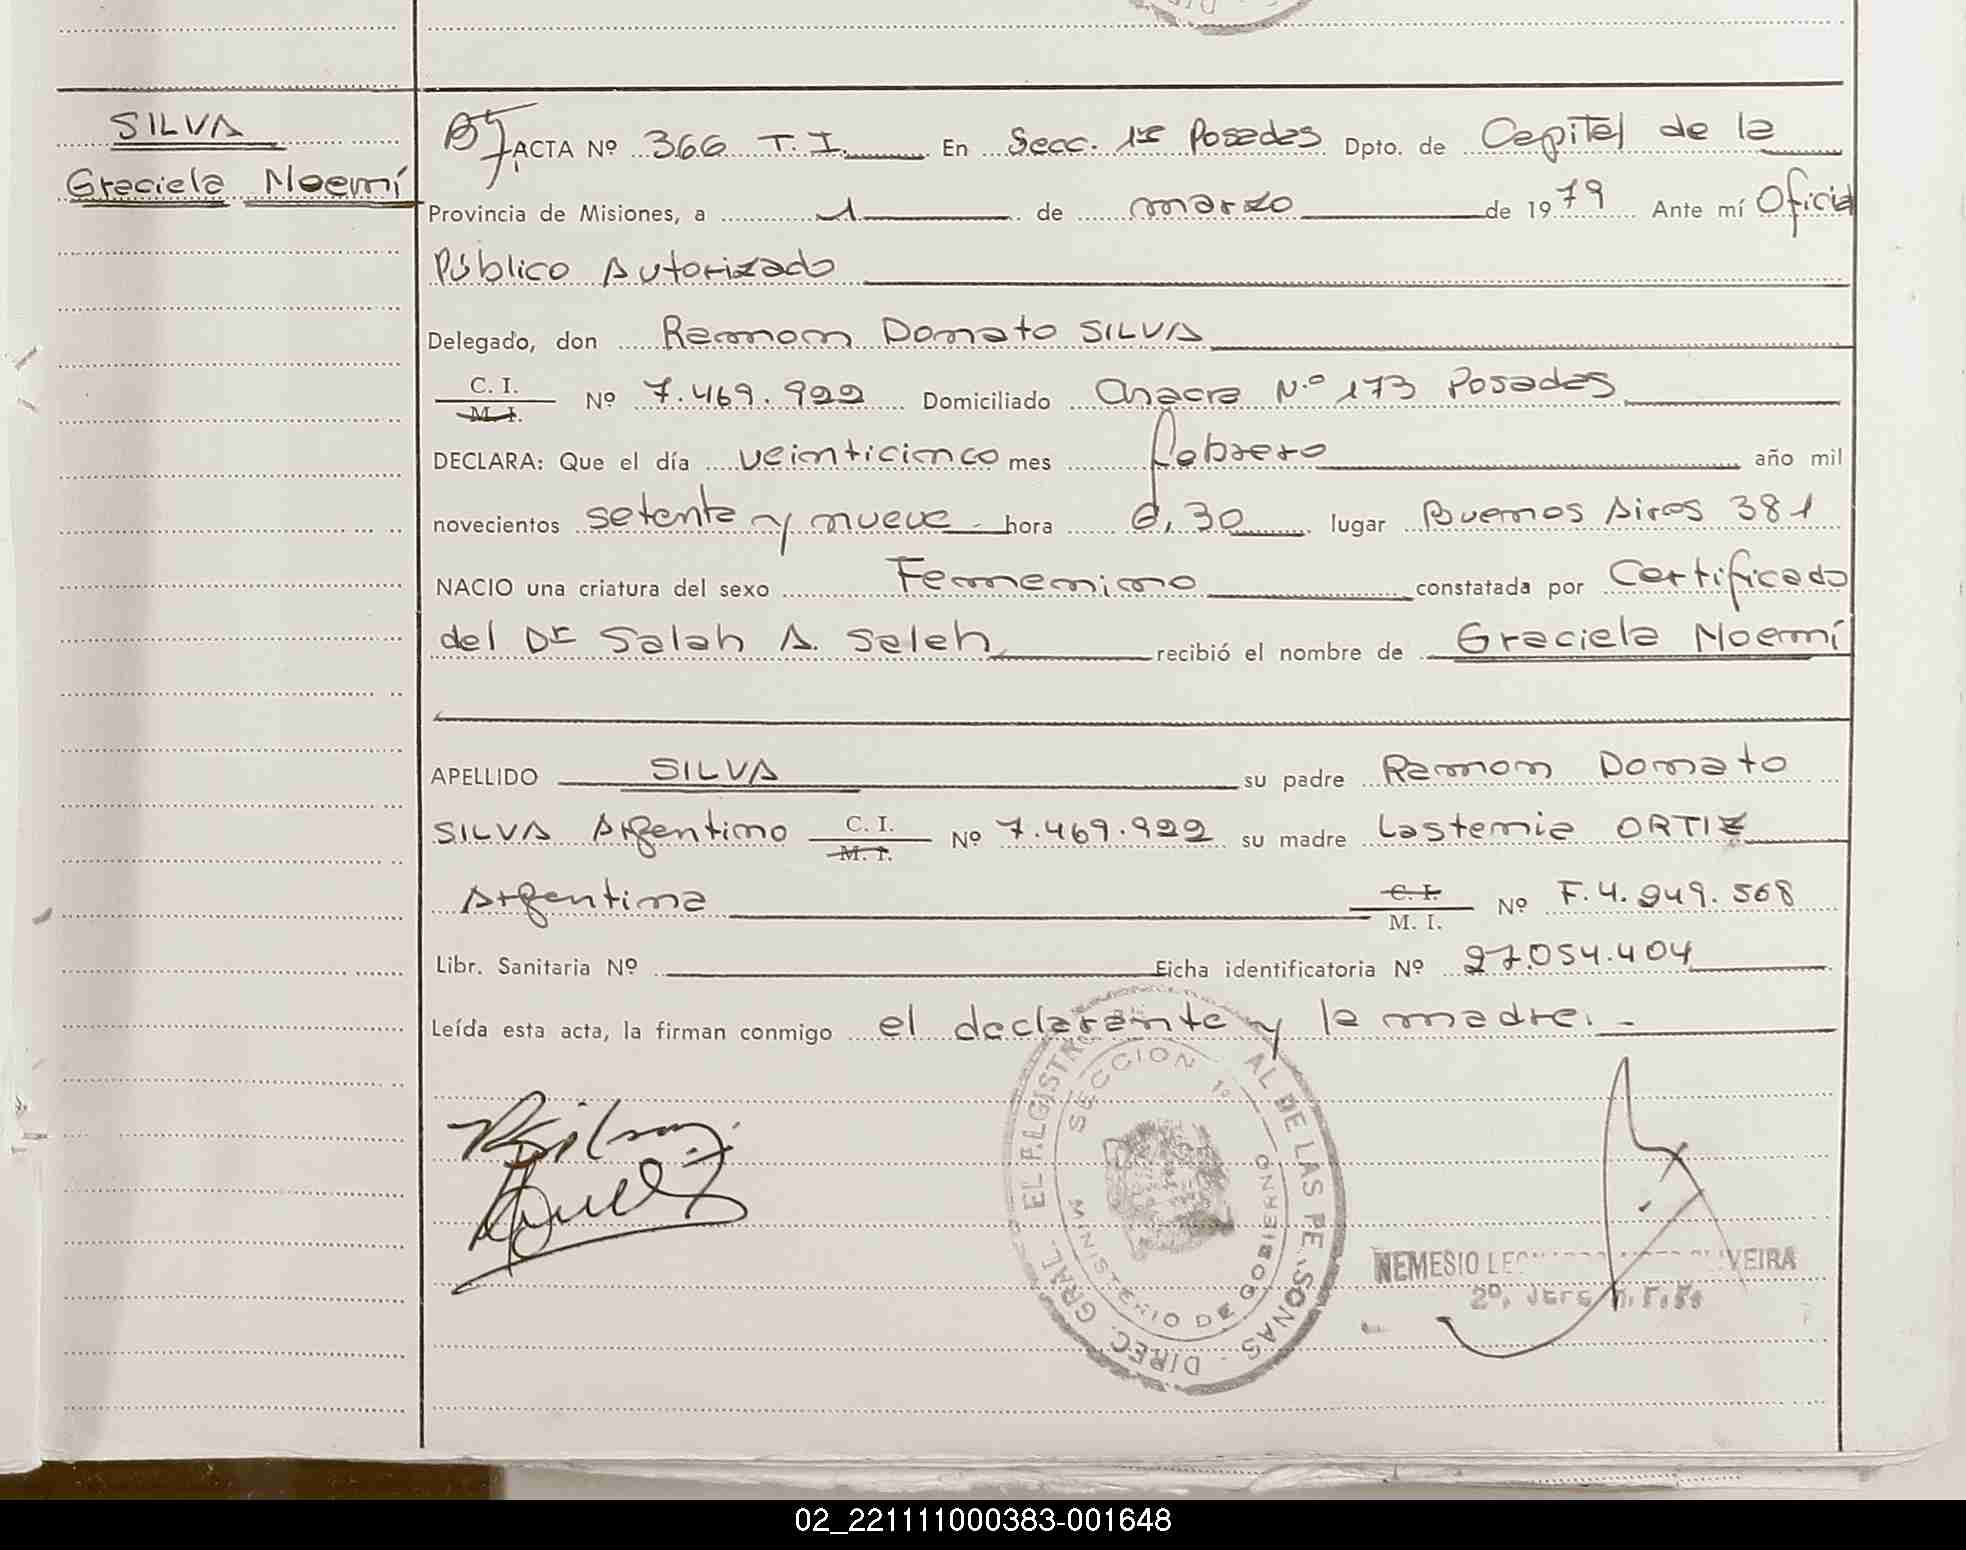 SILVA
Graciela Noemí
ACTA Nº 366 T. I. En Secc. 1ra Posadas Dpto. de Capital de la
Provincia de Misiones, a 1 de marzo de 1979 Ante mí Oficial
Público Autorizado
Delegado, don Ramon Donato SILVA
C. I. M. I. Nº 7.469.922 Domiciliado Chacra N.º 173 Posadas
DECLARA: Que el día veinticinco mes febrero año mil
novecientos setenta y nueve hora 6,30 lugar Buenos Aires 381
NACIO una criatura del sexo Femenino constatada por Certificado
del Dr Salah A. Saleh recibió el nombre de Graciela Noemí
APELLIDO SILVA su padre Ramon Donato
SILVA Argentino C. I. M. I. Nº 7.469.922 su madre Lastenia ORTIZ
Argentina C. I. M. I. Nº F.4.949.568
Libr. Sanitaria Nº Ficha identificatoria Nº 27.054.404
Leída esta acta, la firman conmigo el declarante y la madre.-
DIREC. GRAL. DE LAS PERSONAS
SECCION 1º
MINISTERIO DE GOBIERNO
NEMESIO
2º. JEFE
02_221111000383-001648